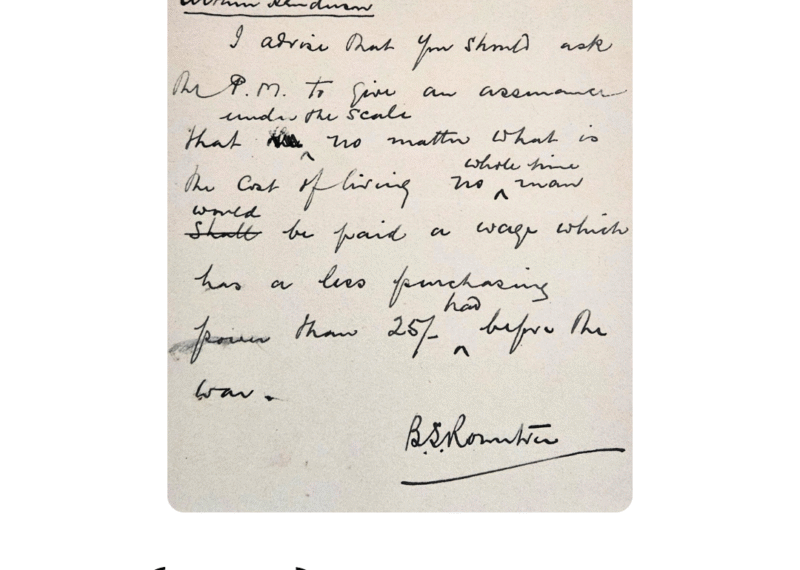 Arthur Henderson
I advise that you should ask
the P.M. to give an assurance
under the scale
that no matter what is
whole time
the cost of living no ^ man
would
shall be paid a wage which
has a less purchasing
had
power than 25/- ^ before the
war.
B.S. Rowntree